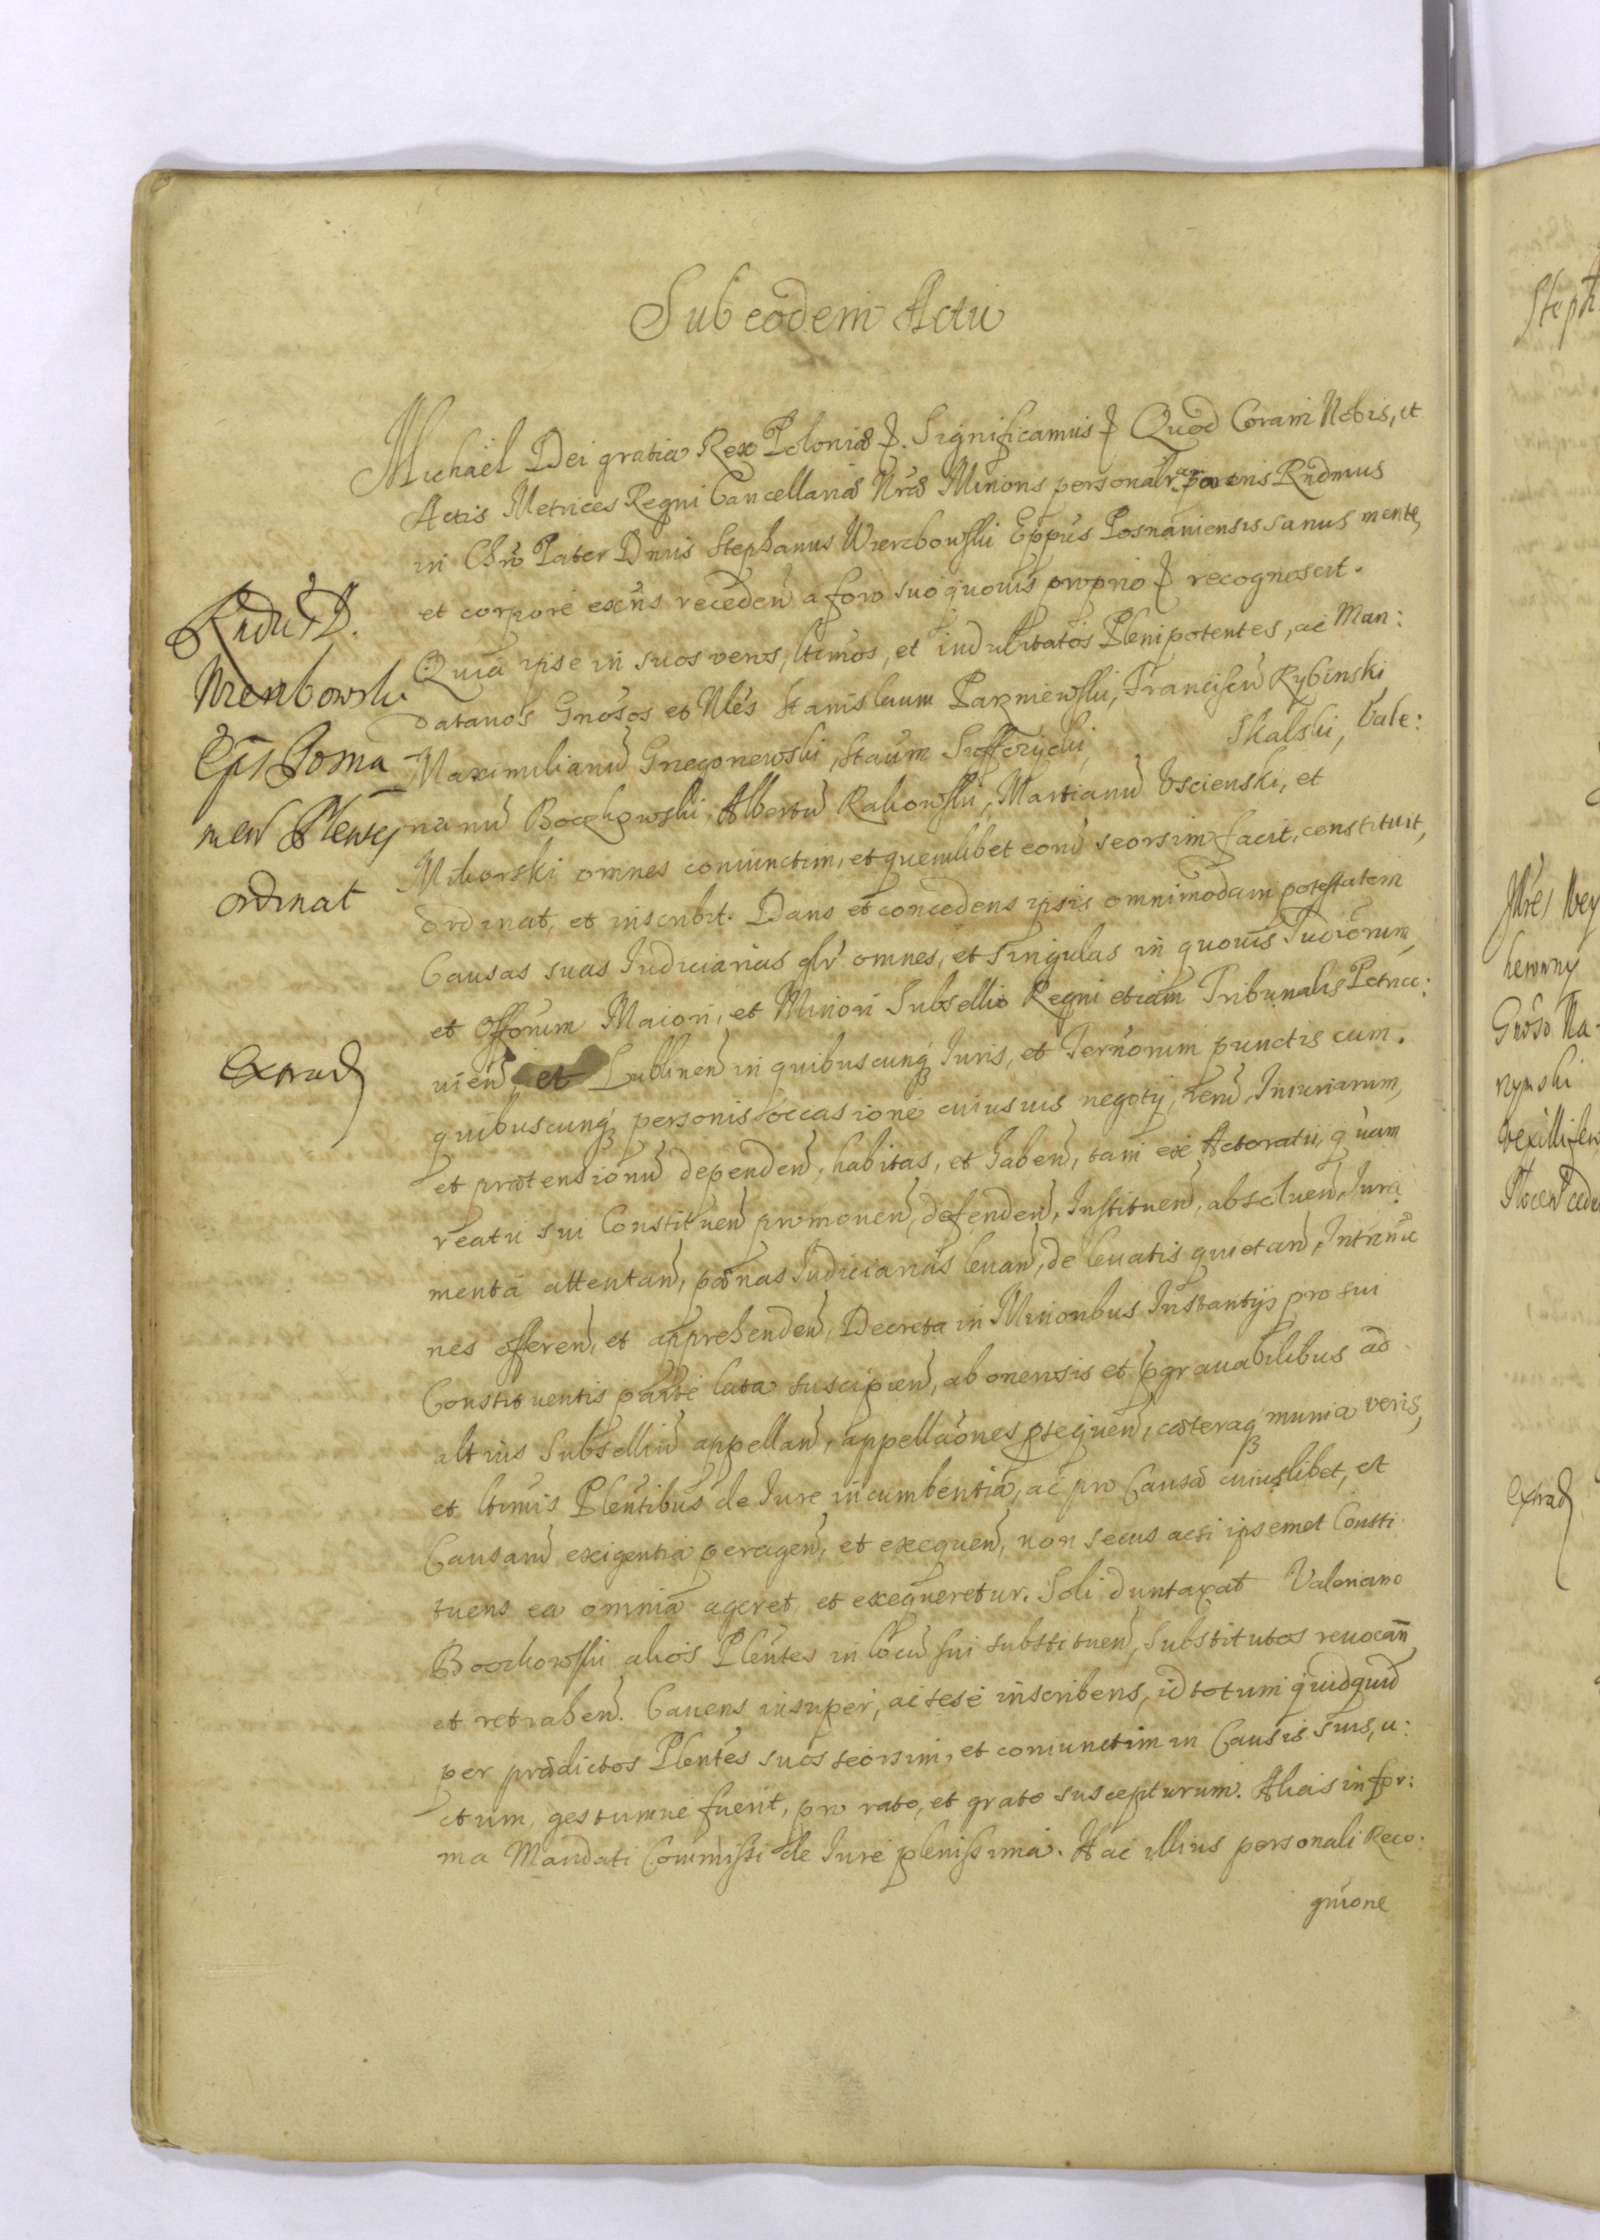 Sub eodem Actu
Michaël Dei gratia Rex Poloniæ Significamus Quod Coram Nobis, et
Actis Metrices Regni Cancellariæ Nræ Minoris personalr Rñdmus
in Chrō Pater Dnus Stephanus Wierzbowski Eppus Posnaniensis sanus mente,
et corpore exēns recedeñ a foro suo quovis proprio recognoscit.
Quia ipse in suos veros, ltimos, et indubitatos Plenipotentes, ac Man:
datarios Gnosos et Nles Stanislaum Parzniewski, Franciscū Rybinski
Maximilianū Gnegorzewski, Staum Skalski, Vale:
rianū Boczkowski, Albertū Rakowski, Martianū Uscienski, et
Miborski omnes coniunctim, et quemlibet eorū seorsim facit, constituit,
ordinat, et inscribit. Dans et concedens ipsis omnimodam potestatem
Causas suas Judiciarias glr omnes, et singulas in quovis Judiorum,
et Offorum Maiori, et Minori Subsellio Regni etiam Tribunalis Petrico:
uien, et Lublinen in quibuscunq Iuris, et Ternorum punctis cum
quibuscunq personis occasione cuiusuis negotij, rerū, Iniuriarum,
et prætensionū dependen, habitas, et haben, tam ex Actoratu, quam
reatu sui Constituen promouen, defenden, Instituen, absoluen, Iura
menta attentan, pœnas Judiciarias leuan, de leuatis quietan, Intromi
nes offeren, et apprehenden, Decreta in Minoribus Instantijs pro sui
Constituentis parte lata suscipien, ab onerosis et pgrauabilibus ad
altius Subselliū appellan, appellaōnes psequen, cæteraq munia veris,
et ltimis Plentibus de Iure incumbentia, ac pro Causæ cuiuslibet, et
Causarū exigentia peragen, et exequen, non secus acsi ipsemet Consti
tuens ea omnia ageret, et exequeretur. Soli duntaxat Valeriano
Boczkowski alios Plentes in locū sui substituen, Substitutos reuocan
et retrahen. Cauens insuper, ac sese inscribens, id totum quidquid
per prædictos Plentes suos seorsim, et coniunctim in Causis suis, a:
ctum, gestumue fuerit, pro rato, et grato suscepturum. Alias in for:
ma Mandati Commissi de Iure plenissima. Hac illius personali Reco:
gnione
Rndus D.
Wierzbowski
Eps Posna
nien Plentes
ordinat
Extrad